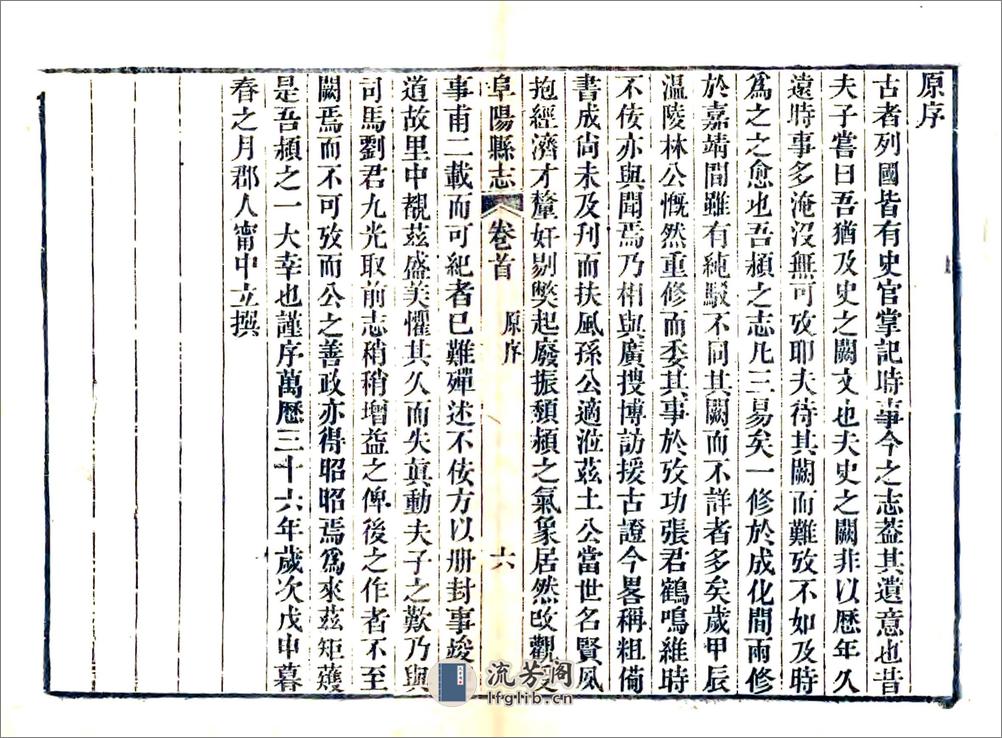 原序
古者列國皆有史官掌記時事今之志葢其遺意也昔
夫子嘗曰吾猶及史之闕文也夫史之闕非以歷年久
遠時事多淹沒無可攷耶夫待其闕而難攷不如及時
爲之之愈也吾潁之志凡三易矣一修於成化間兩修
於嘉靖間雖有純駁不同其闕而不詳者多矣歲甲辰
溫陵林公慨然重修而委其事於攷功張君鶴鳴維時
不佞亦與聞焉乃相與廣搜博訪援古證今畧稱粗備
書成尚未及刊而扶風孫公適涖茲土公當世名賢風
抱經濟才釐奸剔獘起廢振頽潁之氣象居然改觀
阜陽縣志 卷首 原序 六
事甫二載而可紀者已難殫述不佞方以册封事竣
道故里中覩茲盛美懼其久而失眞動夫子之歎乃與
司馬劉君九光取前志稍稍增益之俾後之作者不至
闕焉而不可攷而公之善政亦得昭昭焉爲來茲矩矱
是吾潁之一大幸也謹序萬歷三十六年歲次戊申暮
春之月郡人甯中立撰
流芳閣
lfglib.cn